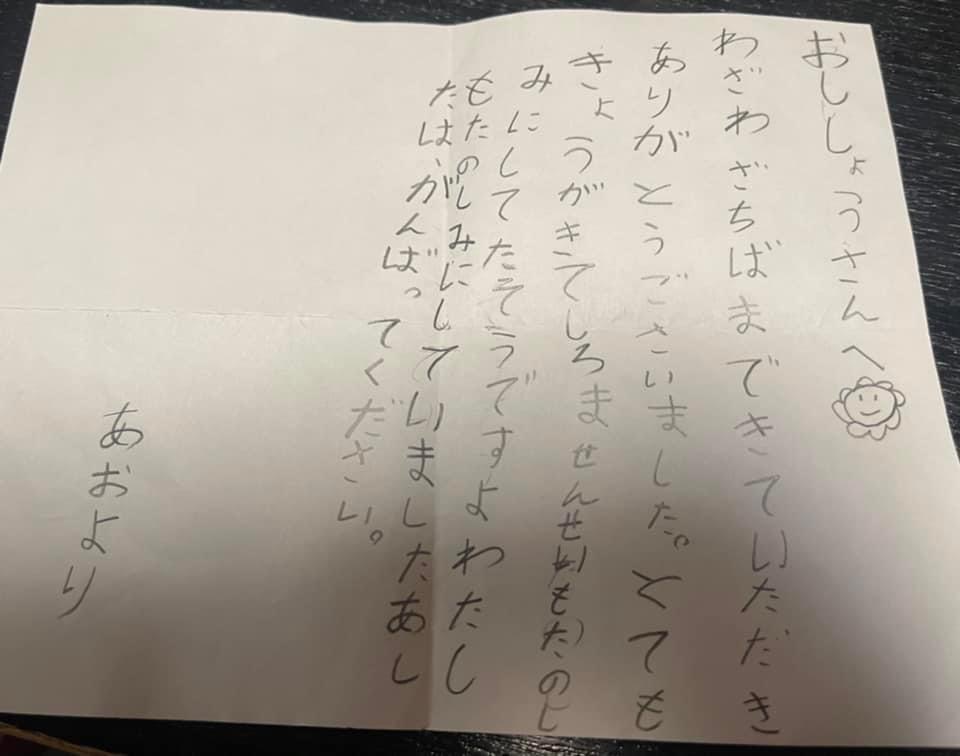 おししょうさんへ
わざわざちばまできていただき
ありがとうございました。とても
きょうがきてしろませんせいもたのし
みにしてたそうですよわたし
もたのしみにしていましたあし
たは、がんばってください。
あおより